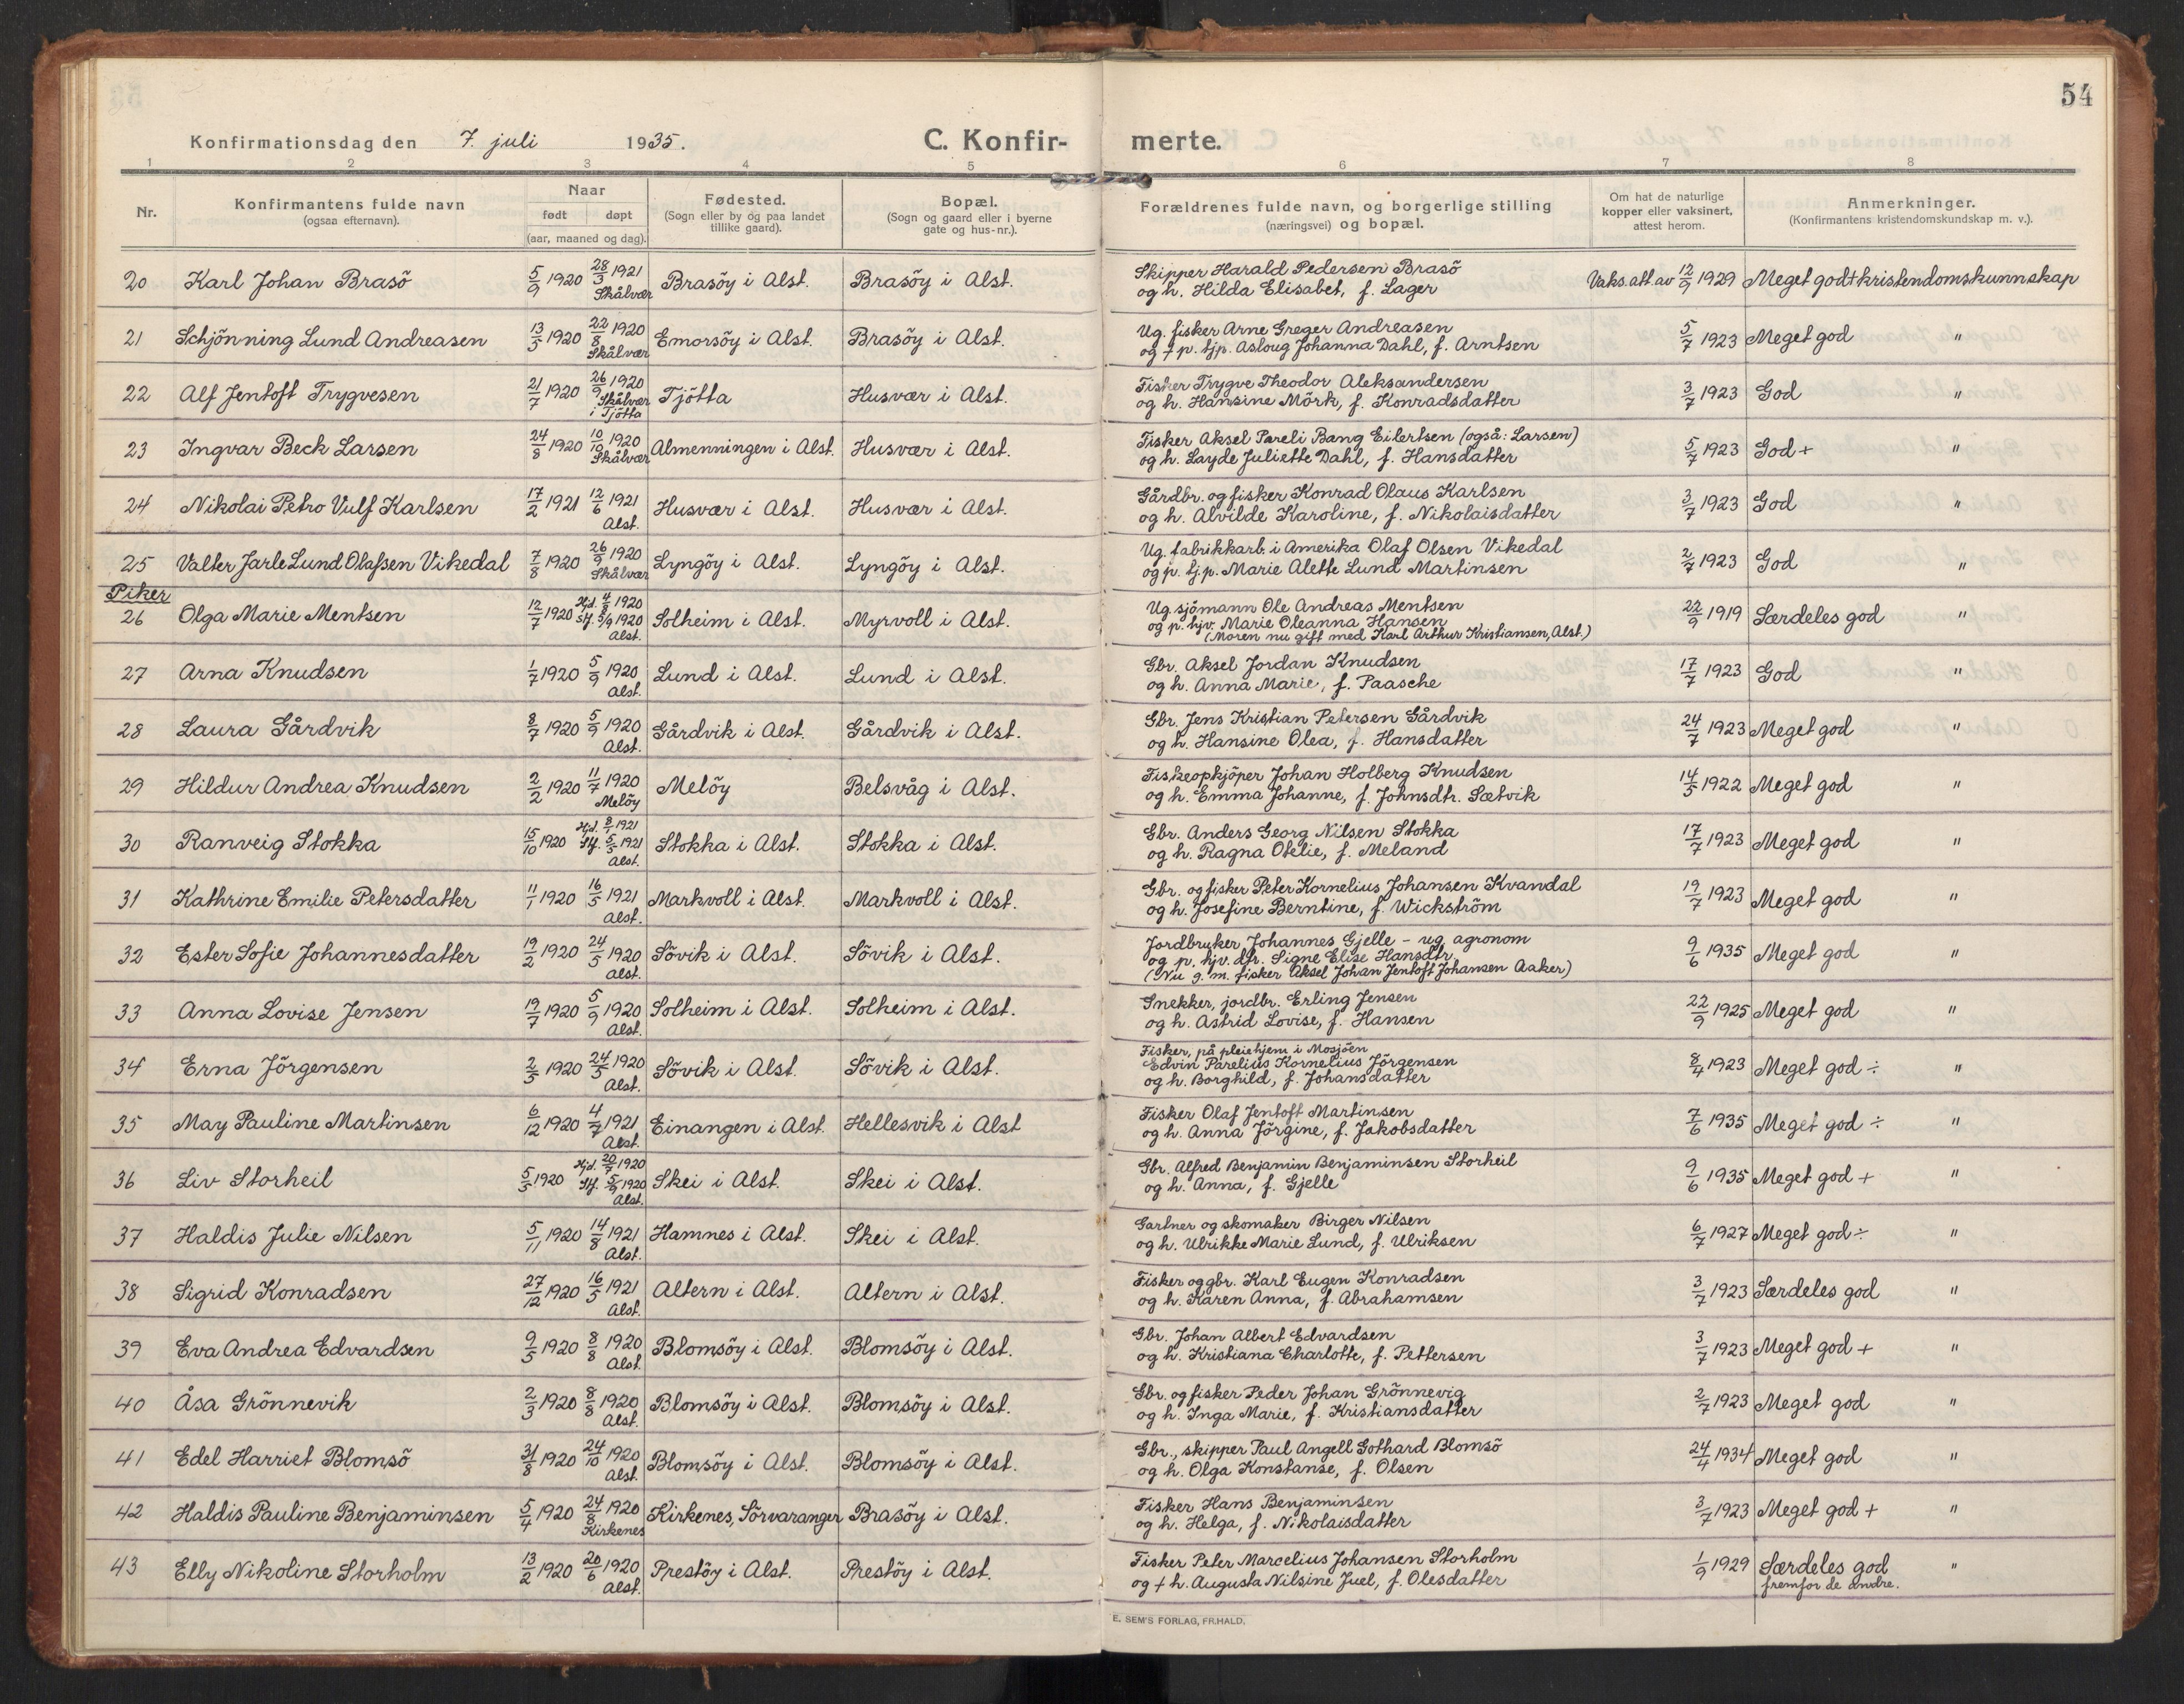 54
Konfirmationsdag den 7. juli 1935. C. Konfir- merte.
1 2 3 4 5 6 7 8
Nr. Konfirmantens fulde navn (ogsaa efternavn). Naar født døpt (aar, maaned og dag). Fødested. (Sogn eller by og paa landet tillike gaard). Bopæl. (Sogn og gaard eller i byerne gate og hus-nr.). Forældrenes fulde navn, og borgerlige stilling (næringsvei) og bopæl. Om hat de naturlige kopper eller vaksinert, attest herom. Anmerkninger. (Konfirmantens kristendomskundskap m. v.).
20 Karl Johan Brasö 5/9 1920 28/3 1921 Skålvær Brasöy i Alst. Brasöy i Alst. Skipper Harald Pedersen Brasö og h. Hilda Elisabet, f. Lager Vaks. att. av 12/9 1929 Meget godt kristendomskunnskap
21 Schjönning Lund Andreasen 13/5 1920 22/8 1920 Skålvær Emorsöy i Alst. Brasöy i Alst. Ug. fisker Arne Greger Andreasen og + p. tjp. Aslaug Johanna Dahl, f. Arntsen 5/7 1923 Meget god "
22 Alf Jentoft Trygvesen 21/7 1920 26/9 1920 Skålvær i Tjötta Tjötta Husvær i Alst. Fisker Trygve Theodor Aleksandersen og h. Hansine Mörk, f. Konradsdatter 3/7 1923 God "
23 Ingvar Beck Larsen 24/8 1920 10/10 1920 Skålvær Almenningen i Alst. Husvær i Alst. Fisker Aksel Pareli Bang Eilertsen (også: Larsen) og h. Layde Juliette Dahl, f. Hansdatter 5/7 1923 God + "
24 Nikolai Petro Vulf Karlsen 17/2 1921 12/6 1921 Alst. Husvær i Alst. Husvær i Alst. Gårdbr. og fisker Konrad Olaus Karlsen og h. Alvilde Karoline, f. Nikolaisdatter 3/7 1923 God "
25 Valter Jarle Lund Olafsen Vikedal 7/8 1920 26/9 1920 Skålvær Lyngöy i Alst. Lyngöy i Alst. Ug. fabrikkarb. i Amerika Olaf Olsen Vikedal og p. tj.p. Marie Alette Lund Martinsen 2/7 1923 God "
Piker
26 Olga Marie Mentsen 12/7 1920 Hjd. 4/8 1920 Stf. 5/9 1920 Alst. Solheim i Alst. Myrvoll i Alst. Ug. sjömann Ole Andreas Mentsen og p. hjv. Marie Oleanna Hansen (Moren nu gift med Karl Arthur Kristiansen, Alst.) 22/9 1919 Særdeles god "
27 Arna Knudsen 1/7 1920 5/9 1920 Alst. Lund i Alst. Lund i Alst. Gbr. Aksel Jordan Knudsen og h. Anna Marie, f. Paasche 17/7 1923 God "
28 Laura Gårdvik 8/7 1920 5/9 1920 Alst. Gårdvik i Alst. Gårdvik i Alst. Gbr. Jens Kristian Petersen Gårdvik og h. Hansine Olea, f. Hansdatter 24/7 1923 Meget god "
29 Hildur Andrea Knudsen 2/2 1920 11/7 1920 Melöy Melöy Belsvåg i Alst. Fiskeopkjöper Johan Holberg Knudsen og h. Emma Johanne, f. Johnsdtr. Sætvik 14/5 1922 Meget god "
30 Ranveig Stokka 15/10 1920 Hjd. 8/1 1921 Stf. 5/5 1921 Alst. Stokka i Alst. Stokka i Alst. Gbr. Anders Georg Nilsen Stokka og h. Ragna Otelie, f. Meland 17/7 1923 Meget god "
31 Kathrine Emilie Petersdatter 11/1 1920 16/5 1921 Alst. Markvoll i Alst. Markvoll i Alst. Gbr. og fisker Peter Kornelius Johansen Kvandal og h. Josefine Berntine, f. Wickström 19/7 1923 Meget god "
32 Ester Sofie Johannesdatter 19/2 1920 24/5 1920 Alst. Sövik i Alst. Sövik i Alst. Jordbruker Johannes Gjelle - ug. agronom og p. hjv. dtr. Signe Elise Hansdtr. (Nu g. m. fisker Aksel Johan Jentoft Johansen Aaker) 9/6 1935 Meget god "
33 Anna Lovise Jensen 19/7 1920 5/9 1920 Alst. Solheim i Alst. Solheim i Alst. Snekker, jordbr. Erling Jensen og h. Astrid Lovise, f. Hansen 22/9 1925 Meget god "
34 Erna Jörgensen 2/5 1920 24/5 1920 Alst. Sövik i Alst. Sövik i Alst. Fisker, på pleiehjem i Mosjöen Edvin Parelius Kornelius Jörgensen og h. Borghild, f. Johansdatter 8/4 1923 Meget god ÷ "
35 May Pauline Martinsen 6/12 1920 4/7 1921 Alst. Einangen i Alst. Hellesvik i Alst Fisker Olaf Jentoft Martinsen og h. Anna Jörgine, f. Jakobsdatter 7/6 1935 Meget god ÷ "
36 Liv Storheil 5/5 1920 Hjd. 20/7 1920 Stf. 5/9 1920 Alst. Skei i Alst. Skei i Alst. Gbr. Alfred Benjamin Benjaminsen Storheil og h. Anna, f. Gjelle 9/6 1935 Meget god + "
37 Haldis Julie Nilsen 5/11 1920 14/8 1921 Alst. Hamnes i Alst. Skei i Alst. Gartner og skomaker Birger Nilsen og h. Ulrikke Marie Lund, f. Ulriksen 6/7 1927 Meget god ÷ "
38 Sigrid Konradsen 27/12 1920 16/5 1921 Alst. Altern i Alst. Altern i Alst. Fisker og gbr. Karl Eugen Konradsen og h. Karen Anna, f. Abrahamsen 3/7 1923 Særdeles god "
39 Eva Andrea Edvardsen 9/5 1920 8/8 1920 Alst. Blomsöy i Alst. Blomsöy i Alst. Gbr. Johan Albert Edvardsen og h. Kristiana Charlotte, f. Pettersen 3/7 1923 Meget god + "
40 Åsa Grönnevik 2/3 1920 8/8 1920 Alst. Blomsöy i Alst. Blomsöy i Alst. Gbr. og fisker Peder Johan Grönnevig og h. Inga Marie, f. Kristiansdatter 2/7 1923 Meget god "
41 Edel Harriet Blomsö 31/8 1920 24/10 1920 Alst. Blomsöy i Alst. Blomsöy i Alst. Gbr., skipper Paul Angell Gothard Blomsö og h. Olga Konstanse, f. Olsen 24/4 1934 Meget god "
42 Haldis Pauline Benjaminsen 5/4 1920 24/8 1920 Kirkenes Kirkenes, Sörvaranger Brasöy i Alst. Fisker Hans Benjaminsen og h. Helga, f. Nikolaisdatter 3/7 1923 Meget god + "
43 Elly Nikoline Storholm 13/2 1920 20/6 1920 Alst. Prestöy i Alst. Prestöy i Alst. Fisker Peter Marcelius Johansen Storholm og + h. Augusta Nilsine Juel, f. Olesdatter 1/9 1929 Særdeles god fremfor de andre. "
E. SEM'S FORLAG, FR.HALD.